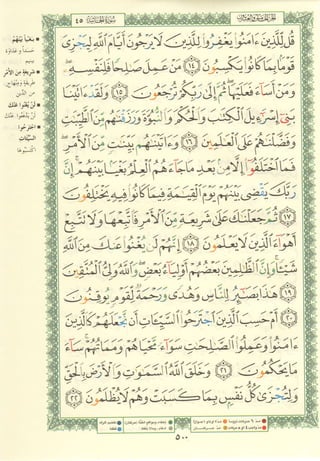 سُورَةُ الجَاثِيَة ٤٥
قُل لِّلَّذِينَ ءَامَنُوا۟ يَغْفِرُوا۟ لِلَّذِينَ لَا يَرْجُونَ أَيَّامَ ٱللَّهِ لِيَجْزِىَ
قَوْمًۢا بِمَا كَانُوا۟ يَكْسِبُونَ ١٤ مَنْ عَمِلَ صَٰلِحًا فَلِنَفْسِهِۦ ۖ
وَمَنْ أَسَآءَ فَعَلَيْهَا ۖ ثُمَّ إِلَىٰ رَبِّكُمْ تُرْجَعُونَ ١٥ وَلَقَدْ ءَاتَيْنَا
بَنِىٓ إِسْرَٰٓءِيلَ ٱلْكِتَٰبَ وَٱلْحُكْمَ وَٱلنُّبُوَّةَ وَرَزَقْنَٰهُم مِّنَ ٱلطَّيِّبَٰتِ
وَفَضَّلْنَٰهُمْ عَلَى ٱلْعَٰلَمِينَ ١٦ وَءَاتَيْنَٰهُم بَيِّنَٰتٍ مِّنَ ٱلْأَمْرِ ۖ
فَمَا ٱخْتَلَفُوٓا۟ إِلَّا مِنۢ بَعْدِ مَا جَآءَهُمُ ٱلْعِلْمُ بَغْيًۢا بَيْنَهُمْ ۚ إِنَّ
رَبَّكَ يَقْضِى بَيْنَهُمْ يَوْمَ ٱلْقِيَٰمَةِ فِيمَا كَانُوا۟ فِيهِ يَخْتَلِفُونَ
١٧ ثُمَّ جَعَلْنَٰكَ عَلَىٰ شَرِيعَةٍ مِّنَ ٱلْأَمْرِ فَٱتَّبِعْهَا وَلَا تَتَّبِعْ
أَهْوَآءَ ٱلَّذِينَ لَا يَعْلَمُونَ ١٨ إِنَّهُمْ لَن يُغْنُوا۟ عَنكَ مِنَ ٱللَّهِ
شَيْـًٔا ۚ وَإِنَّ ٱلظَّٰلِمِينَ بَعْضُهُمْ أَوْلِيَآءُ بَعْضٍ ۖ وَٱللَّهُ وَلِىُّ ٱلْمُتَّقِينَ
١٩ هَٰذَا بَصَٰٓئِرُ لِلنَّاسِ وَهُدًى وَرَحْمَةٌ لِّقَوْمٍ يُوقِنُونَ
٢٠ أَمْ حَسِبَ ٱلَّذِينَ ٱجْتَرَحُوا۟ ٱلسَّيِّـَٔاتِ أَن نَّجْعَلَهُمْ كَٱلَّذِينَ
ءَامَنُوا۟ وَعَمِلُوا۟ ٱلصَّٰلِحَٰتِ سَوَآءً مَّحْيَاهُمْ وَمَمَاتُهُمْ ۚ سَآءَ
مَا يَحْكُمُونَ ٢١ وَخَلَقَ ٱللَّهُ ٱلسَّمَٰوَٰتِ وَٱلْأَرْضَ بِٱلْحَقِّ
وَلِتُجْزَىٰ كُلُّ نَفْسٍۭ بِمَا كَسَبَتْ وَهُمْ لَا يُظْلَمُونَ ٢٢
بَغْيًا بَيْنَهُمْ
حسداً وعداوة
بينهم
شَرِيعَةٍ مِنَ الأَمْرِ
طريقة ومنهاج
من الدين
لَنْ يُغْنُوا عَنْكَ
لن يدفعوا عنك
اجْتَرَحُوا
السَّيِّئَات
اكتسبوها
٥٠٠